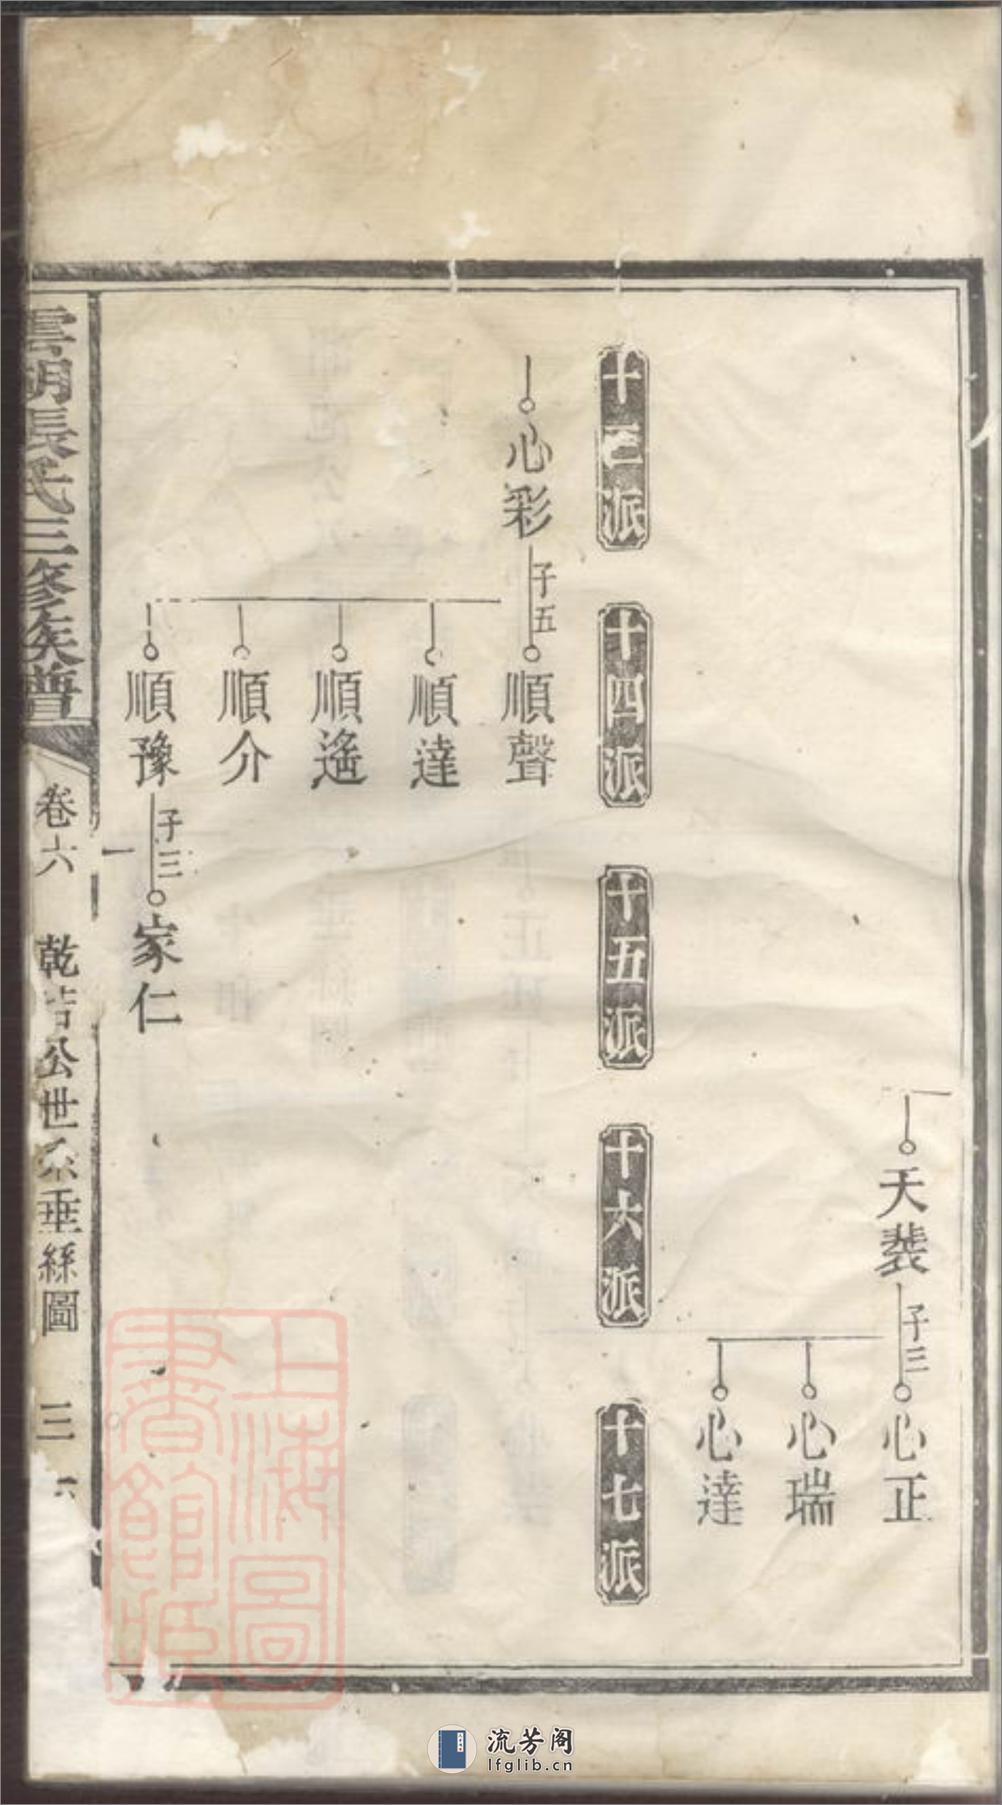 天裴
子三
心正
心瑞
心達
十三派
十四派
十五派
十六派
十七派
心彩
子五
順聲
順達
順遙
順介
順豫
子三
家仁
雲湖張氏三修族譜
卷六
乾吉公世系垂絲圖
三
上海圖書館藏
流芳阁
lfglib.cn